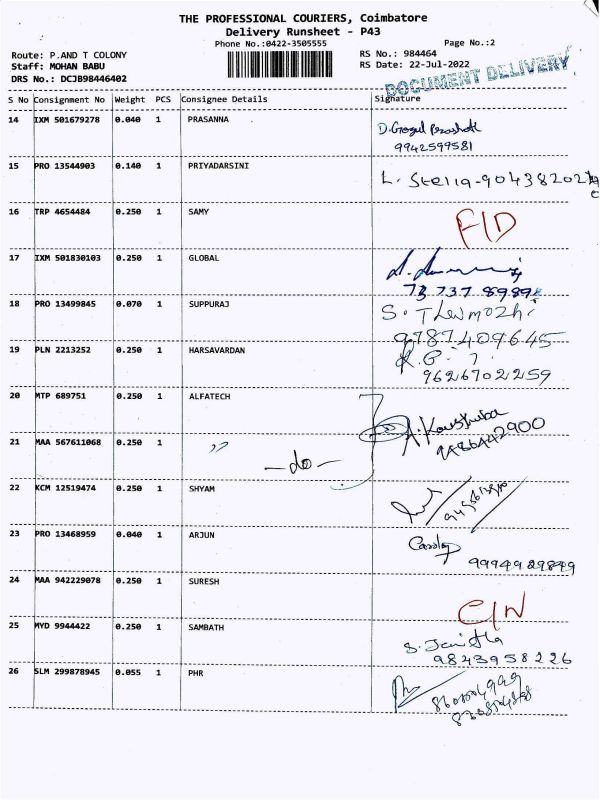 THE PROFESSIONAL COURIERS, Coimbatore
Delivery Runsheet - P43
Phone No.:0422-3505555 Page No.:2
Route: P.AND T COLONY RS No.: 984464
Staff: MOHAN BABU RS Date: 22-Jul-2022
DRS No.: DCJB98446402 DOCUMENT DELIVERY
S No Consignment No Weight PCS Consignee Details Signature
14 IXM 501679278 0.040 1 PRASANNA
9942599581
15 PRO 13544903 0.140 1 PRIYADARSINI L. Stella-90438202
16 TRP 4654484 0.250 1 SAMY
17 IXM 501830103 0.250 1 GLOBAL
73 737 8989
18 PRO 13499845 0.070 1 SUPPURAJ S. Thenmozhi
9787409645
19 PLN 2213252 0.250 1 HARSAVARDAN
9626702259
20 MTP 689751 0.250 1 ALFATECH
21 MAA 567611068 0.250 1 ,, -do-
9486442900
22 KCM 12519474 0.250 1 SHYAM
23 PRO 13468959 0.040 1 ARJUN
9994929899
24 MAA 942229078 0.250 1 SURESH
25 MYD 9944422 0.250 1 SAMBATH
9843958226
26 SLM 299878945 0.055 1 PHR